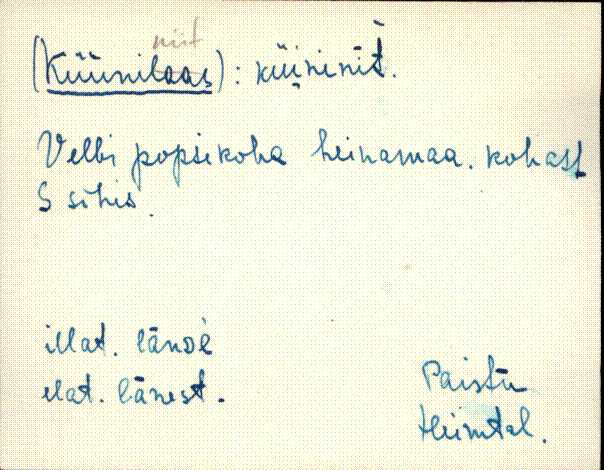 niit
(Küünilaas): küininit̀.
Velbi popsikoha heinamaa. kohast
S sihis.
illat. länsè
elat. länest.
Paistu
Heimtal.